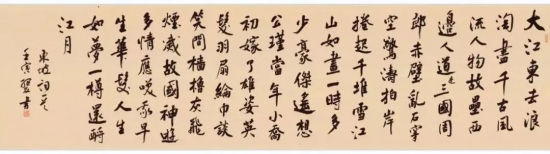 大江東去浪
淘盡千古風
流人物故壘西
邊人道是三國周
郎赤壁亂石穿
空驚濤拍岸
捲起千堆雪江
山如畫一時多
少豪傑遙想
公瑾當年小喬
初嫁了雄姿英
發羽扇綸巾談
笑間檣櫓灰飛
煙滅故國神遊
多情應笑我早
生華髮人生
如夢一樽還酹
江月
東坡詞
壬寅書